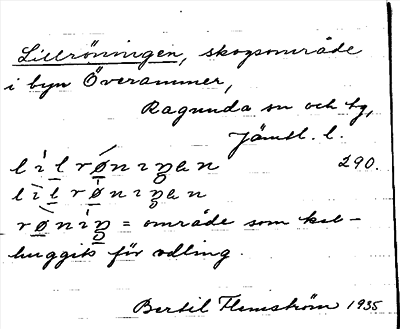 Lillröningen, skogsområde
i byn Överammer,
Ragunda sn och tg,
Jämtl. l.
lilrønıŋen 290.
lilrønıŋen
rønıŋ = område som kal-
huggits för odling.
Bertil Flemström 1935